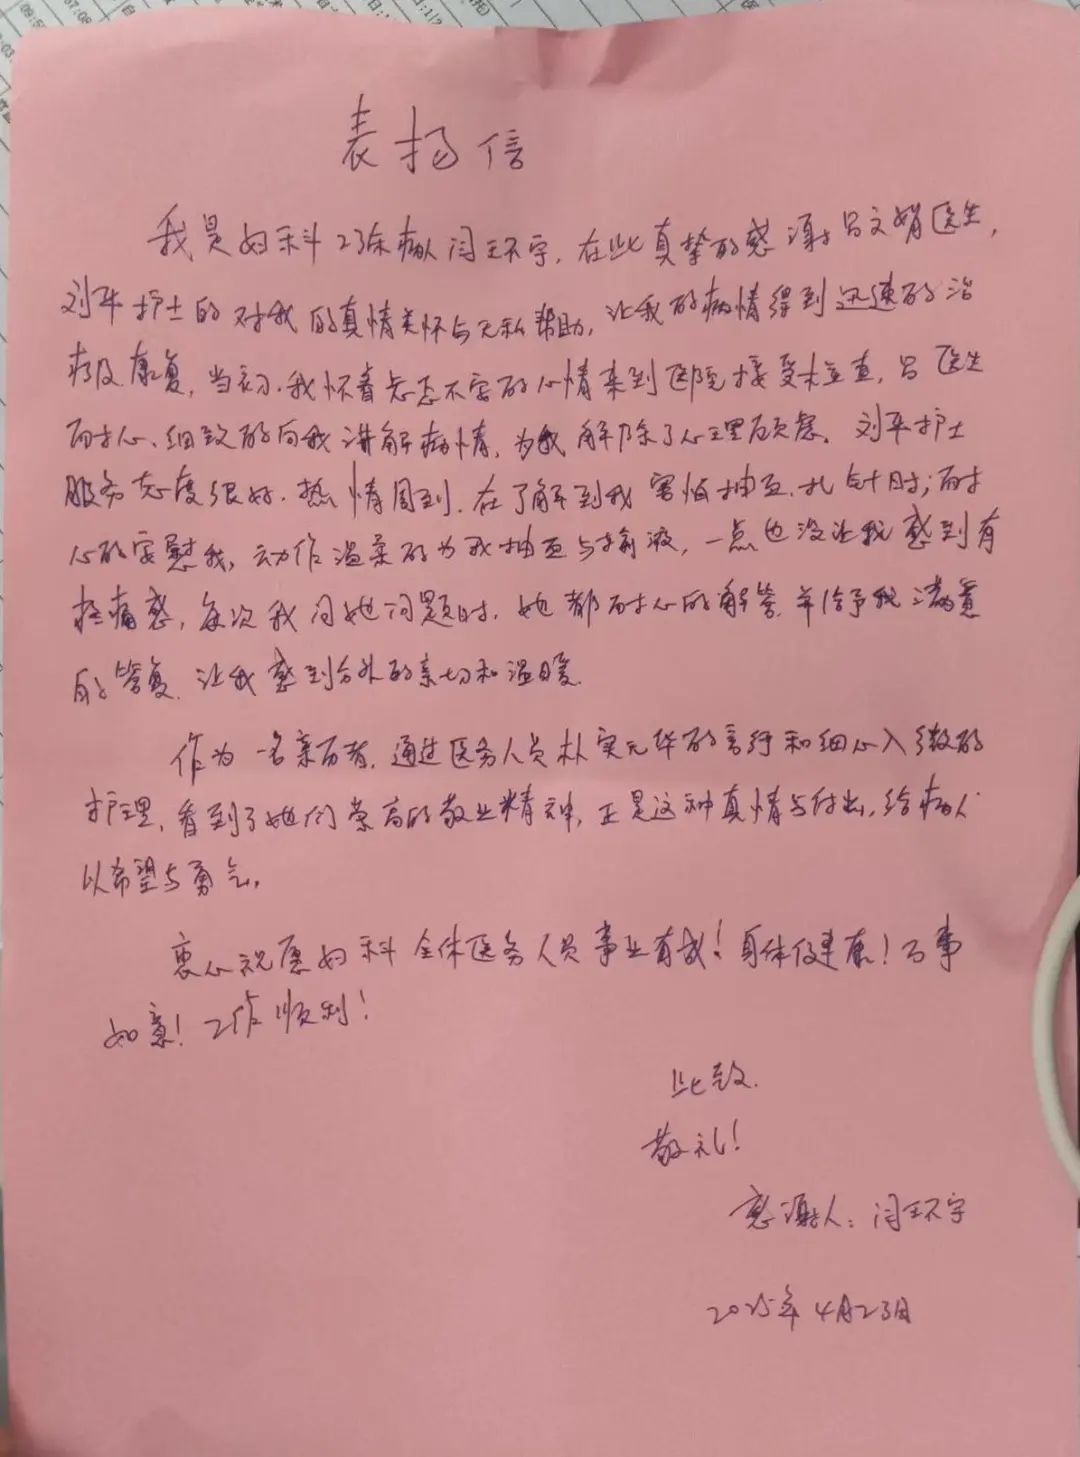 表扬信
我是妇科23床病人闫环宇，在此真挚的感谢吕文娟医生，
刘平护士的对我的真情关怀与无私帮助，让我的病情得到迅速的治
疗及康复，当初，我怀着忐忑不安的心情来到医院接受检查，吕医生
耐心、细致的向我讲解病情，为我解除了心理顾虑。刘平护士
服务态度很好，热情周到，在了解到我害怕抽血、扎针时；耐
心的安慰我，动作温柔的为我抽血与输液，一点也没让我感到有
疼痛感，每次我问她问题时，她都耐心的解答，并给予我满意
的答复，让我感到分外的亲切和温暖。
作为一名亲历者，通过医务人员朴实无华的言行和细心入微的
护理，看到了她们崇高的敬业精神，正是这种真情与付出，给病人
以希望与勇气。
衷心祝愿妇科全体医务人员事业有成！身体健康！万事
如意！工作顺利！
此致
敬礼！
感谢人：闫环宇
2025年4月23日